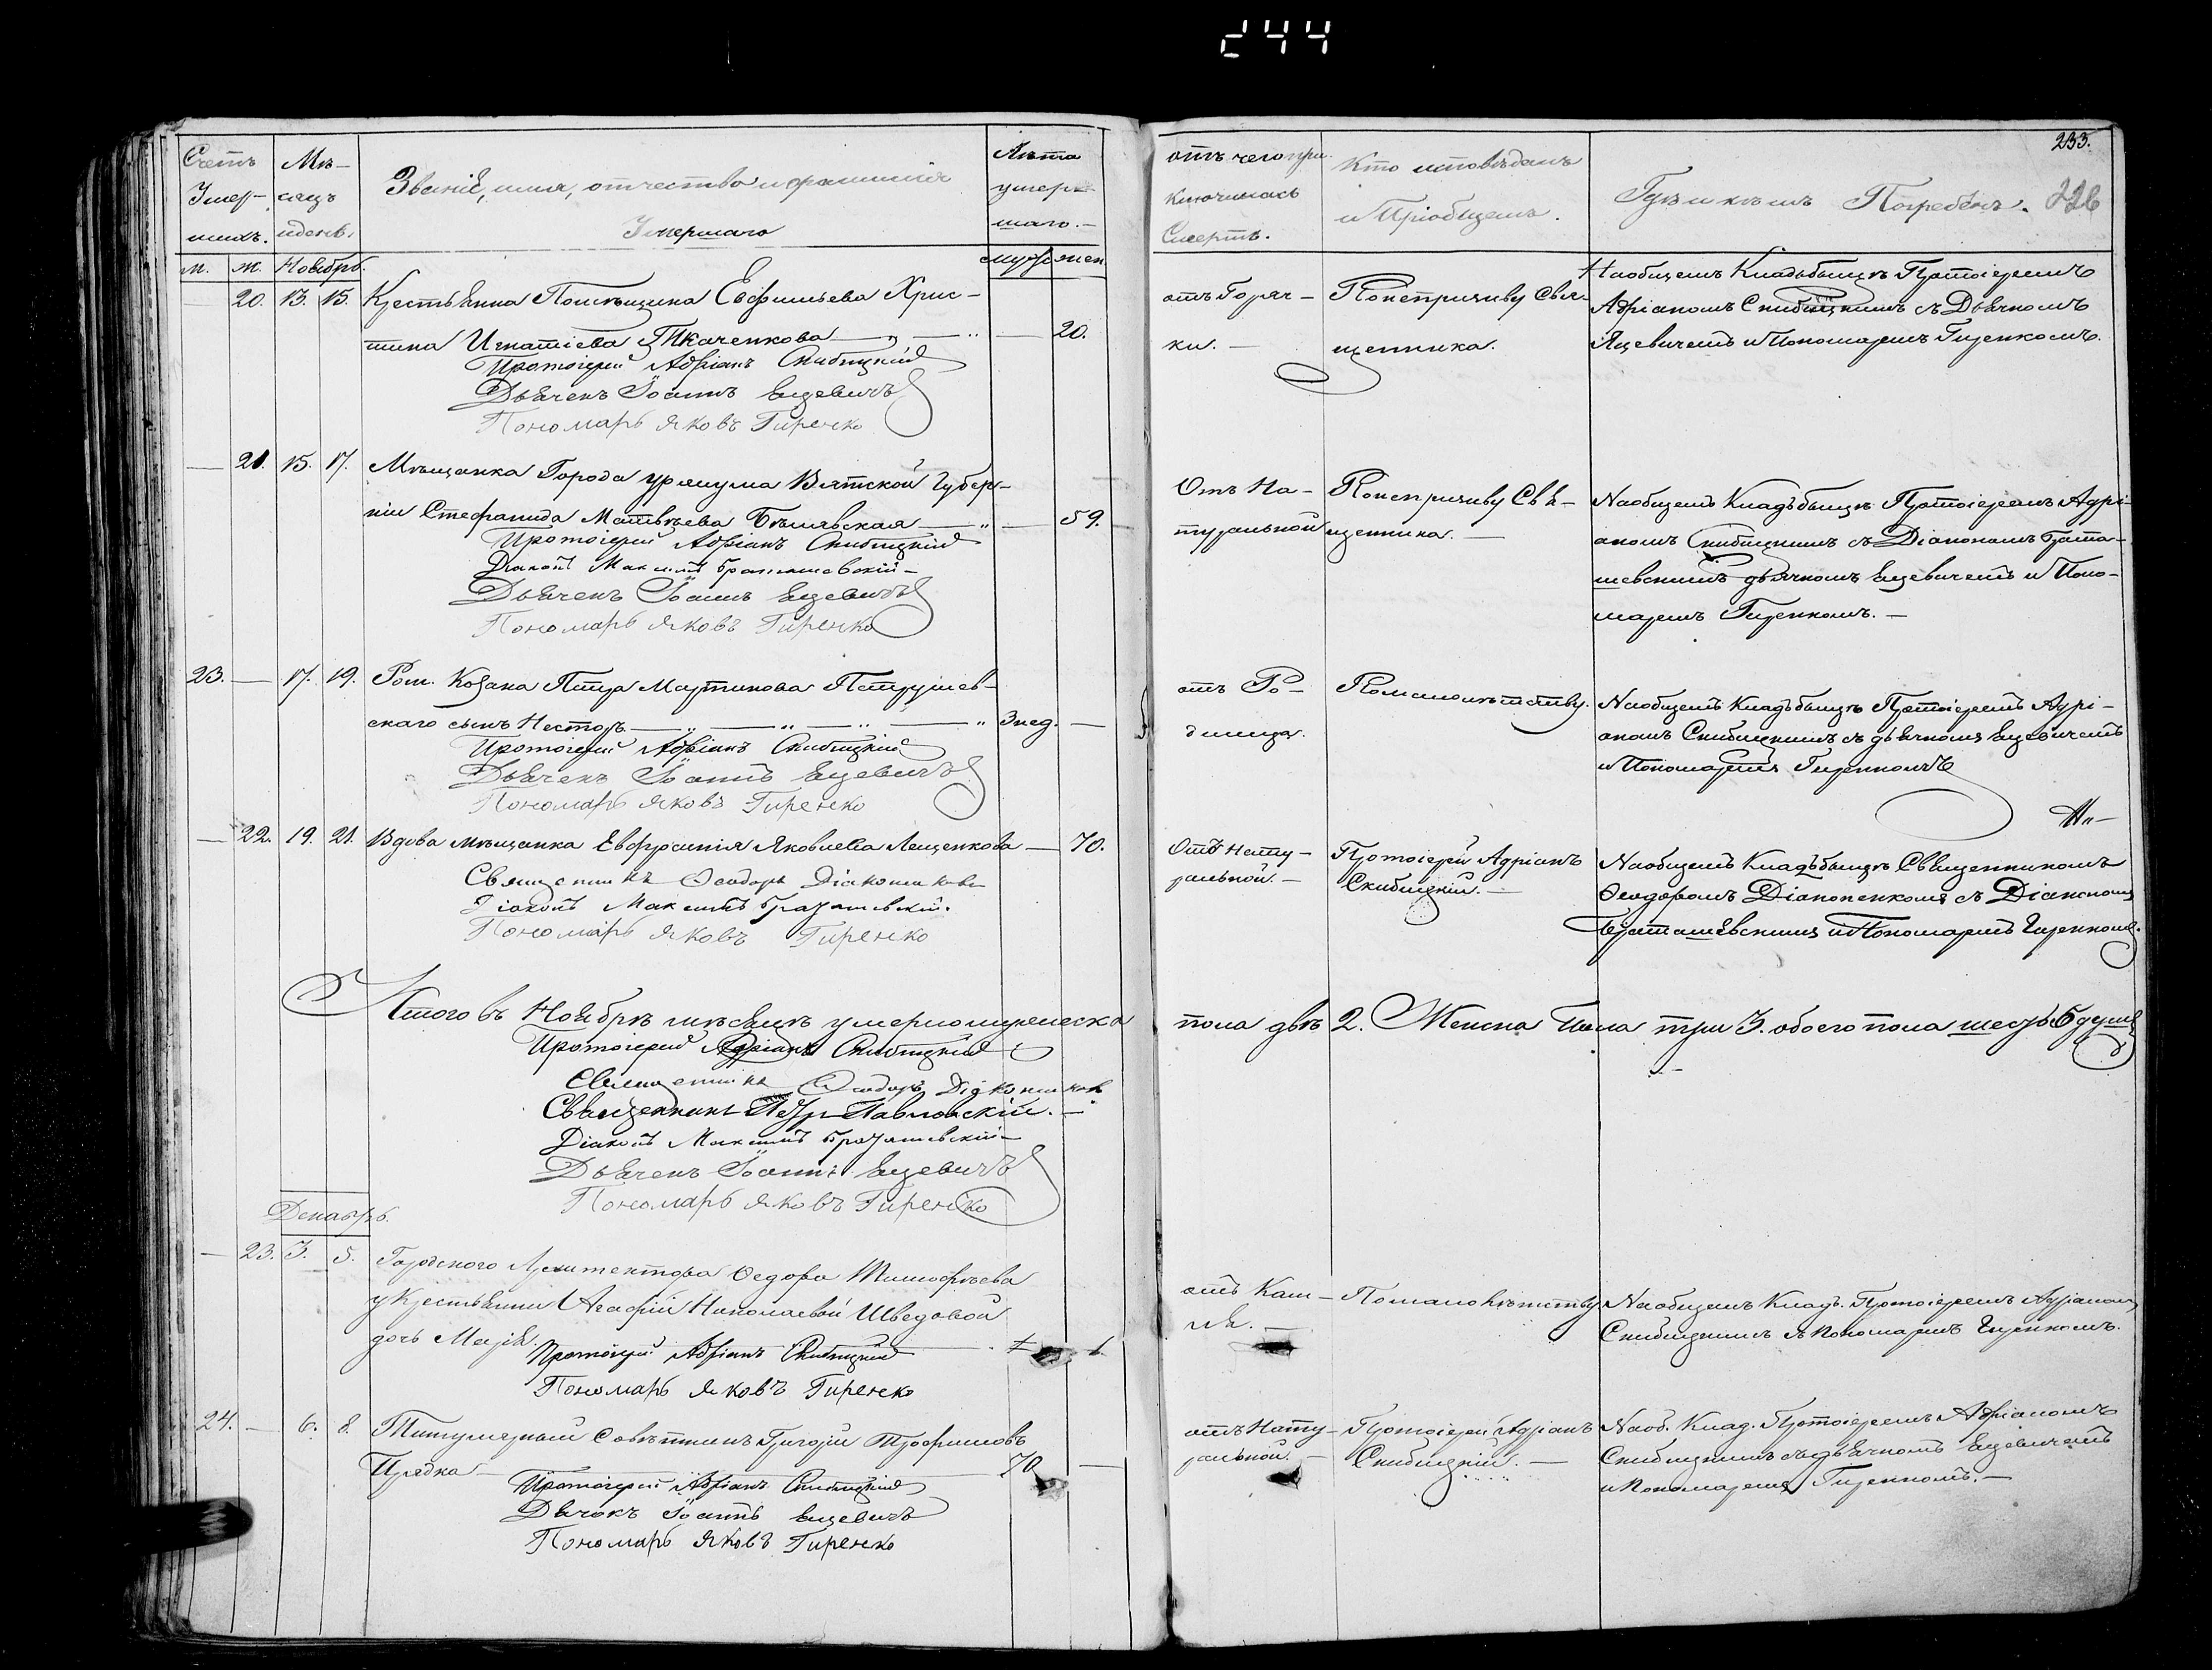 244
Счетъ
Умер-
шихъ.
Мѣ-
сяцъ
и день.
Званіе, имя, отчество и фамилія
Умершаго
Лѣта
умер-
шаго.-
м. ж. Ноябрь. муж. жен.
— 20. 13. 15. Крестьянка Помѣщика Евфимьева Хрис-
тина Игнатіева Ткаченкова — 20.
Протоіерей Адріанъ Скибицкій
Дьячекъ Іоаннъ Яцевичъ
Пономарь Яковъ Гиренко
— 21. 15. 17. Мѣщанка Города Уржума Вятской Губер-
ніи Стефанида Матвѣева Бѣлявская — 59.
Протоіерей Адріанъ Скибицкій
Діаконъ Максимъ
Дьячекъ Іоаннъ Яцевичъ
Пономарь Яковъ Гиренко
23. — 17. 19. Козака Петра Мартинова
скаго сынъ Несторъ — 3 нед. —
Протоіерей Адріанъ Скибицкій
Дьячекъ Іоаннъ Яцевичъ
Пономарь Яковъ Гиренко
— 22. 19. 21. Вдова мѣщанка Евфросинія Яковлева Лещенкова — 70.
Священникъ Ѳеодоръ
Діаконъ Максимъ
Пономарь Яковъ Гиренко
Итого въ Ноябрѣ мѣсяцѣ умерло мужеска
Протоіерей Адріанъ Скибицкій
Священникъ Ѳеодоръ
Священникъ Петръ Павловскій. —
Діаконъ Максимъ
Дьячекъ Іоаннъ Яцевичъ
Пономарь Яковъ Гиренко
Декабрь.
— 23. 3. 5. Городского Архитектора Ѳедора Тимофѣева
у Крестьянки Агафіи Николаевой Шведовой
дочь Марія. 1
Протоіерей Адріанъ Скибицкій
Пономарь Яковъ Гиренко
24. — 6. 8. Титулярный Совѣтникъ Григорій Трофимовъ
70 —
Протоіерей Адріанъ Скибицкій
Дьячокъ Іоаннъ Яцевичъ
Пономарь Яковъ Гиренко
233.
226
отъ чего при-
ключилась
Смерть.
Кто исповѣдалъ
и Пріобщилъ.
Гдѣ и кѣмъ Погребенъ.
отъ Горяч-
ки. —
По непризиву Свя-
щенника.
На общемъ Кладьбищѣ Протоіереемъ
Адріаномъ Скибицкимъ съ Дьячкомъ
Яцевичемъ и Пономаремъ Гиренкомъ.
Отъ На-
туральной
По непризиву Свя-
щенника. —
На общемъ Кладьбищѣ Протоіереемъ Адрі-
аномъ Скибицкимъ съ Діакономъ
дьячкомъ Яцевичемъ и Поно-
маремъ Гиренкомъ. —
отъ Ро-
димца.
По малолѣтству.
На общемъ Кладьбищѣ Протоіереемъ Адрі-
аномъ Скибицкимъ съ дьячкомъ Яцевичемъ
и Пономаремъ Гиренкомъ
Отъ Нату-
ральной. —
Протоіерей Адріанъ
Скибицкій. —
На общемъ Кладьбищѣ Священникомъ
Ѳеодоромъ съ Діакономъ
и Пономаремъ Гиренкомъ.
пола двѣ 2. Женска Пола три 3. обоего пола шесть 6 душъ
отъ Каш-
ля. —
По малолѣтству
На общемъ Кладь. Протоіереемъ Адріаномъ
Скибицкимъ съ пономаремъ Гиренкомъ.
отъ Нату-
ральной. —
Протоіерей Адріанъ
Скибицкій. —
На об. Клад. Протоіереемъ Адріаномъ
Скибицкимъ съ дьячкомъ Яцевичемъ
и Пономаремъ Гиренкомъ. —